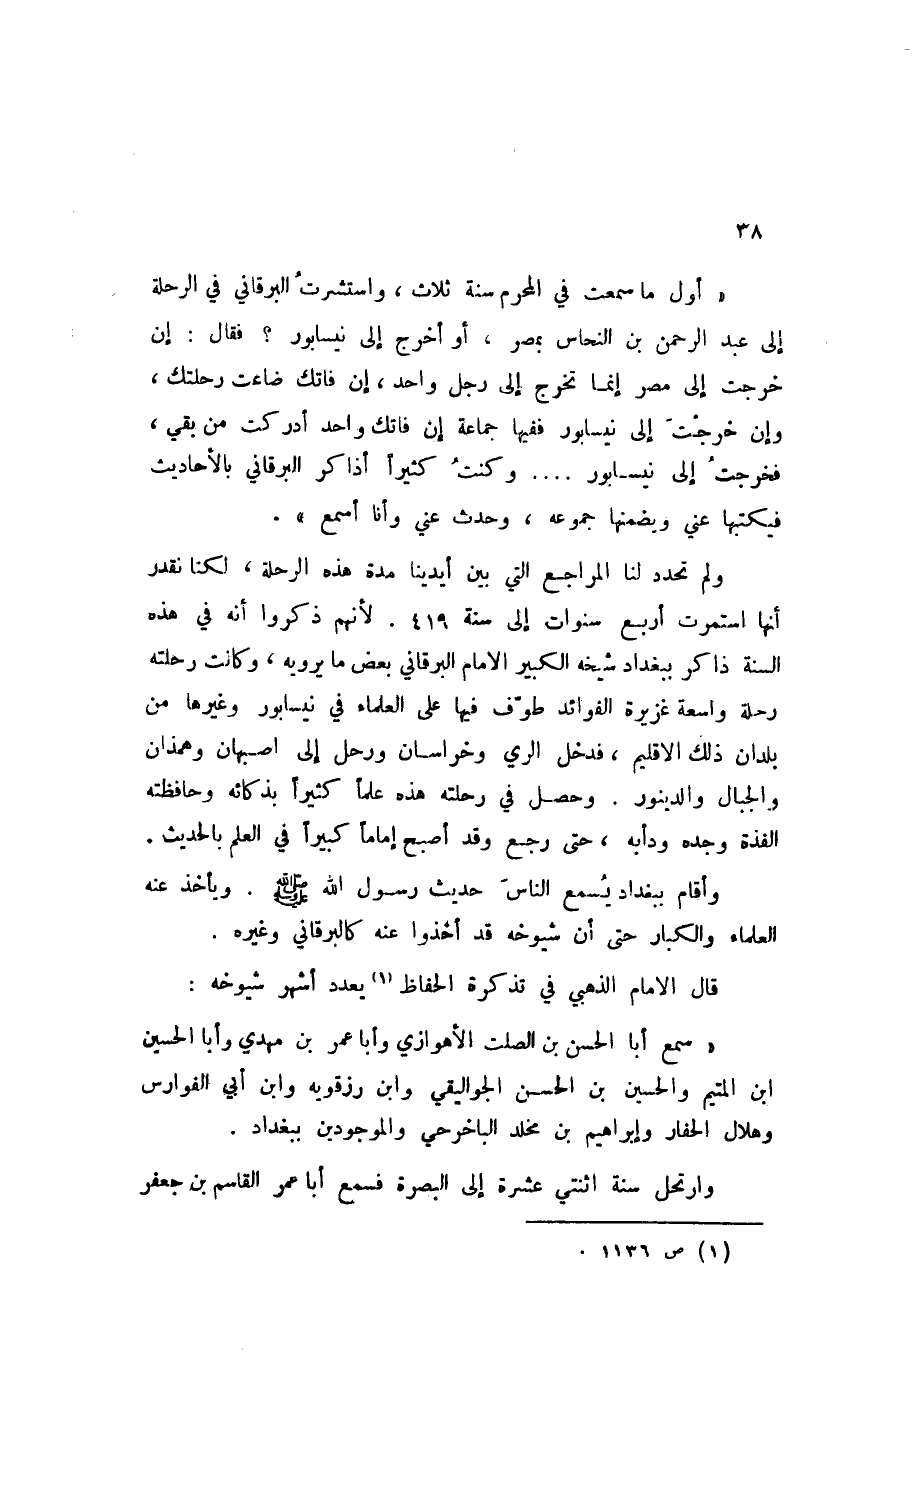 ٣٨
« أول ما سمعت في المحرم سنة ثلاث ، واستشرتُ البرقاني في الرحلة
إلى عبد الرحمن بن النحاس بمصر ، أو أخرج إلى نيسابور ؟ فقال : إن
خرجت إلى مصر إنما تخرج إلى رجل واحد ، إن فاتك ضاعت رحلتك ،
وإن خرجْتَ إلى نيسابور ففيها جماعة إن فاتك واحد أدركت من بقي ،
فخرجتُ إلى نيسابور .... وكنتُ كثيراً أذاكر البرقاني بالأحاديث
فيكتبها عني ويضمنها جموعه ، وحدث عني وأنا أسمع » .
ولم تحدد لنا المراجع التي بين أيدينا مدة هذه الرحلة ، لكنا نقدر
أنها استمرت أربع سنوات إلى سنة ٤١٩ . لأنهم ذكروا أنه في هذه
السنة ذاكر ببغداد شيخه الكبير الامام البرقاني بعض ما يرويه ، وكانت رحلته
رحلة واسعة غزيرة الفوائد طوّف فيها على العلماء في نيسابور وغيرها من
بلدان ذلك الاقليم ، فدخل الري وخراسان ورحل إلى اصبهان وهمذان
والجبال والدينور . وحصل في رحلته هذه علماً كثيراً بذكائه وحافظته
الفذة وجده ودأبه ، حتى رجع وقد أصبح إماماً كبيراً في العلم بالحديث .
وأقام ببغداد يُسمع الناسَ حديث رسول الله ﷺ . ويأخذ عنه
العلماء والكبار حتى أن شيوخه قد أخذوا عنه كالبرقاني وغيره .
قال الامام الذهبي في تذكرة الحفاظ (١) يعدد أشهر شيوخه :
« سمع أبا الحسن بن الصلت الأهوازي وأبا عمر بن مهدي وأبا الحسين
ابن المتيم والحسين بن الحسن الجواليقي وابن رزقويه وابن أبي الفوارس
وهلال الحفار وإبراهيم بن مخلد الباخرحي والموجودين ببغداد .
وارتحل سنة اثنتي عشرة إلى البصرة فسمع أبا عمر القاسم بن جعفر
(١) ص ١١٣٦ .